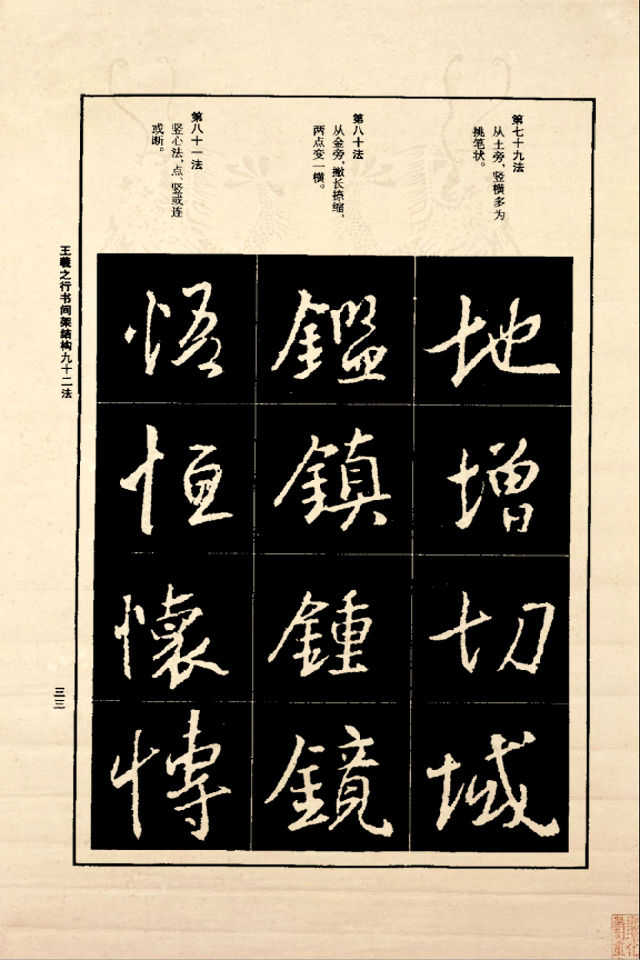 第七十九法
从土旁，竖横多为
挑笔状。
地
增
切
域
第八十法
从金旁，撇长捺缩，
两点变一横。
鑑
鎮
鍾
鏡
第八十一法
竖心法，点、竖或连
或断。
悟
恒
懷
慱
王羲之行书间架结构九十二法
三三